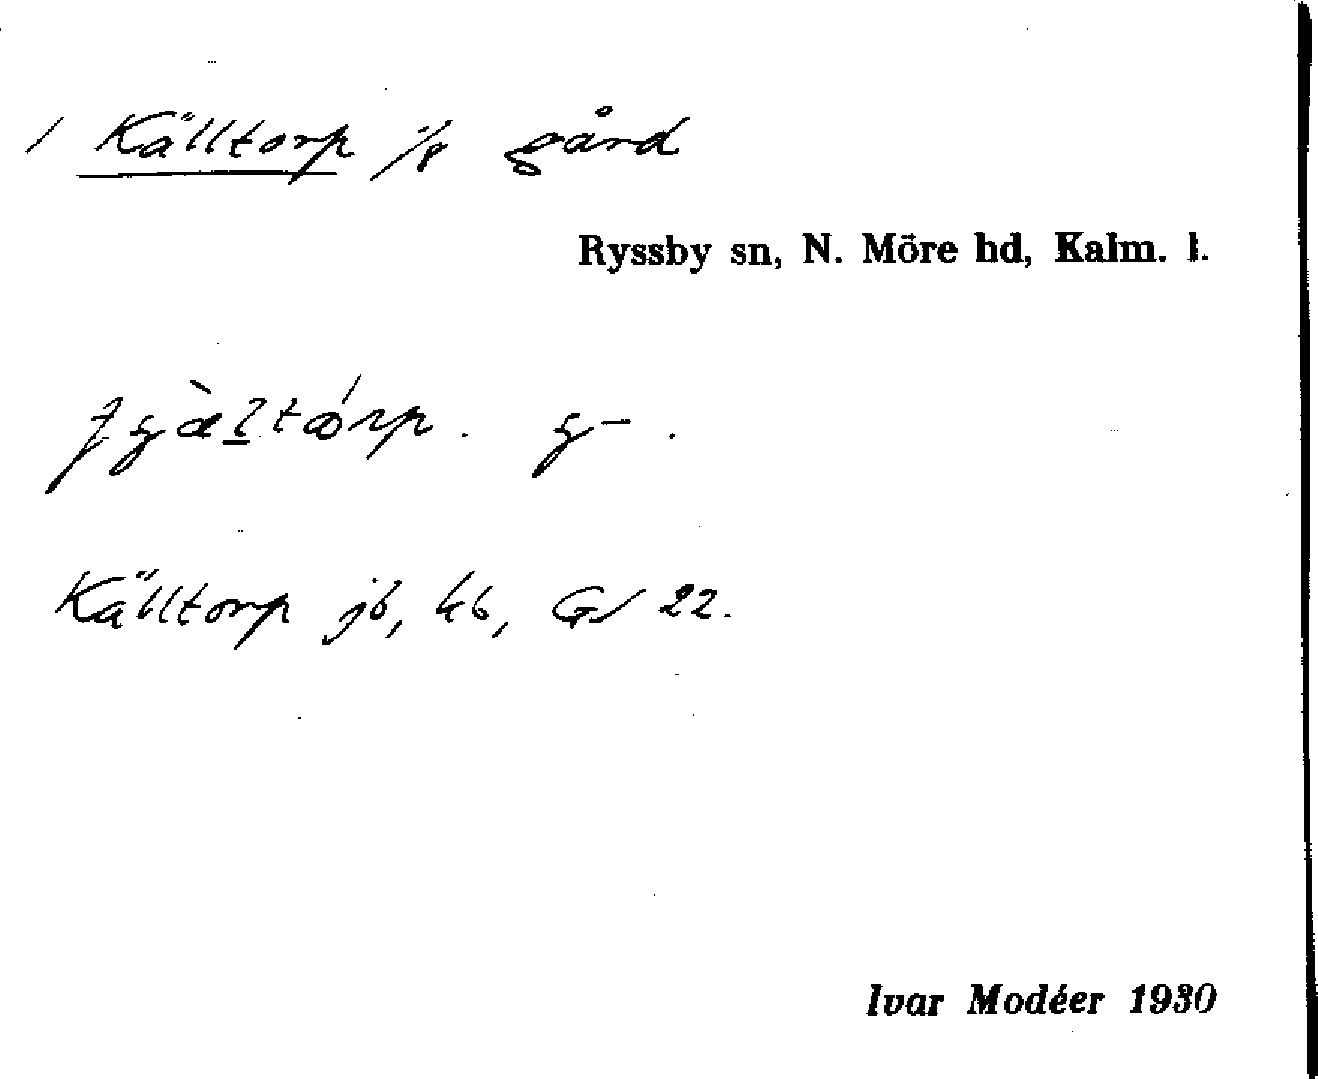 / Källtorp 1/8 gård
Ryssby sn, N. Möre hd, Kalm. l.
Källtorp jb, kb, GS 22.
Ivar Modéer 1930